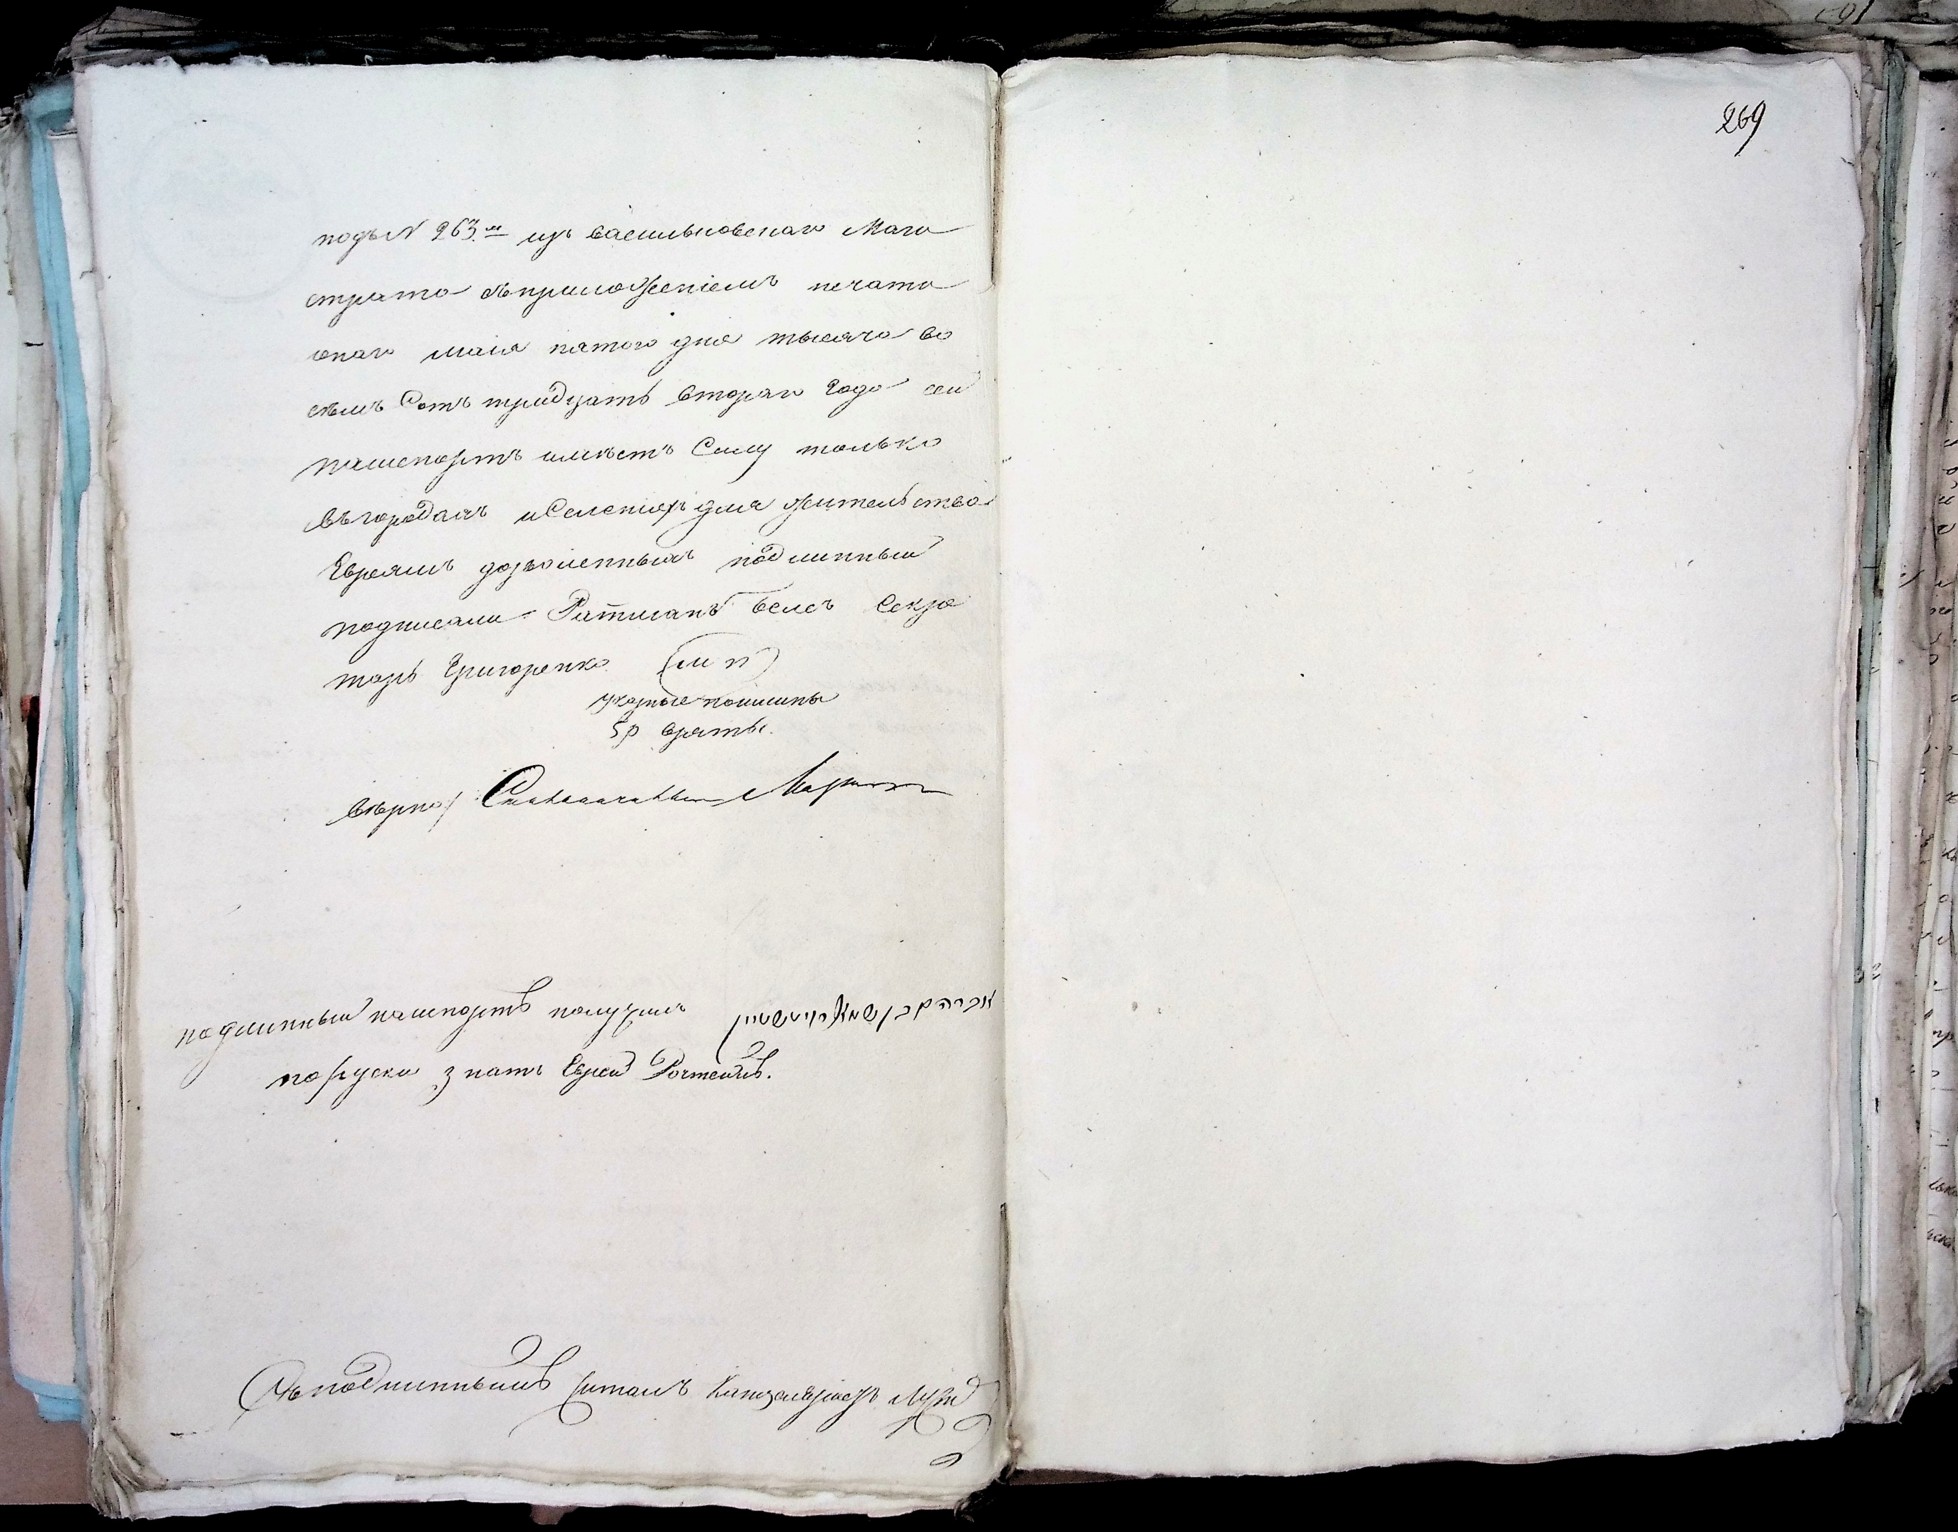 подъ N 263.м изъ васильковскаго Маги
страта съприложениемъ печати
онаго маия пятого дня тысяча во
семъ Сотъ тридцать втораго Года сей
пашспортъ имѣетъ Силу только
въгородахъ иСеленияхъ для жительства
Евреямъ дозволенныхъ подлинный
подписали Ратманъ Белсъ Секре
тарь Григоренко (м п)
указные пошлины
5 р взяты.
вѣрно/
подлинный пашпортъ получилъ אברהם בן
поруски знатъ Еврей
Съподлиннымъ Читалъ Канцеляристъ
269